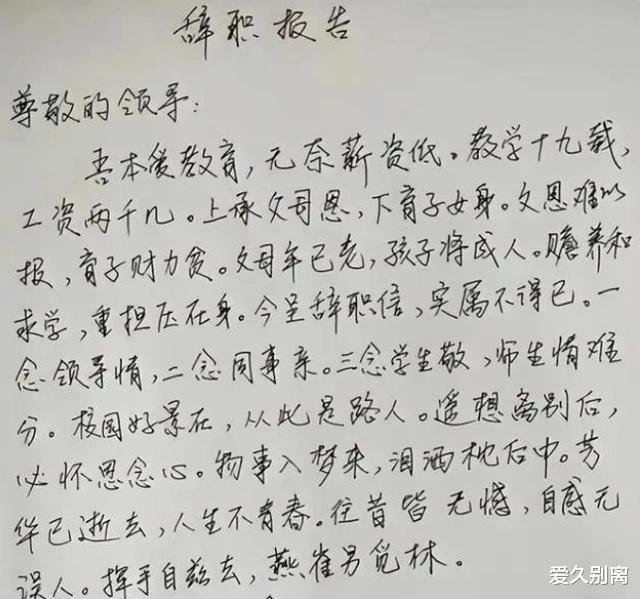 辞职报告
尊敬的领导:
吾本爱教育,无奈薪资低。教学十九载,
工资两千几。上承父母恩,下育子女身。父恩难以
报,育子财力贫。父母年已老,孩子将成人。赡养和
求学,重担压在身。今呈辞职信,实属不得已。一
念领导情,二念同事亲。三念学生敬,师生情难
分。校园好景在,从此是路人。遥想离别后,
必怀思念心。物事入梦来,泪洒枕后中。芳
华已逝去,人生不青春。往昔皆无憾,自感无
误人。挥手自兹去,燕雀另觅林。
爱久别离